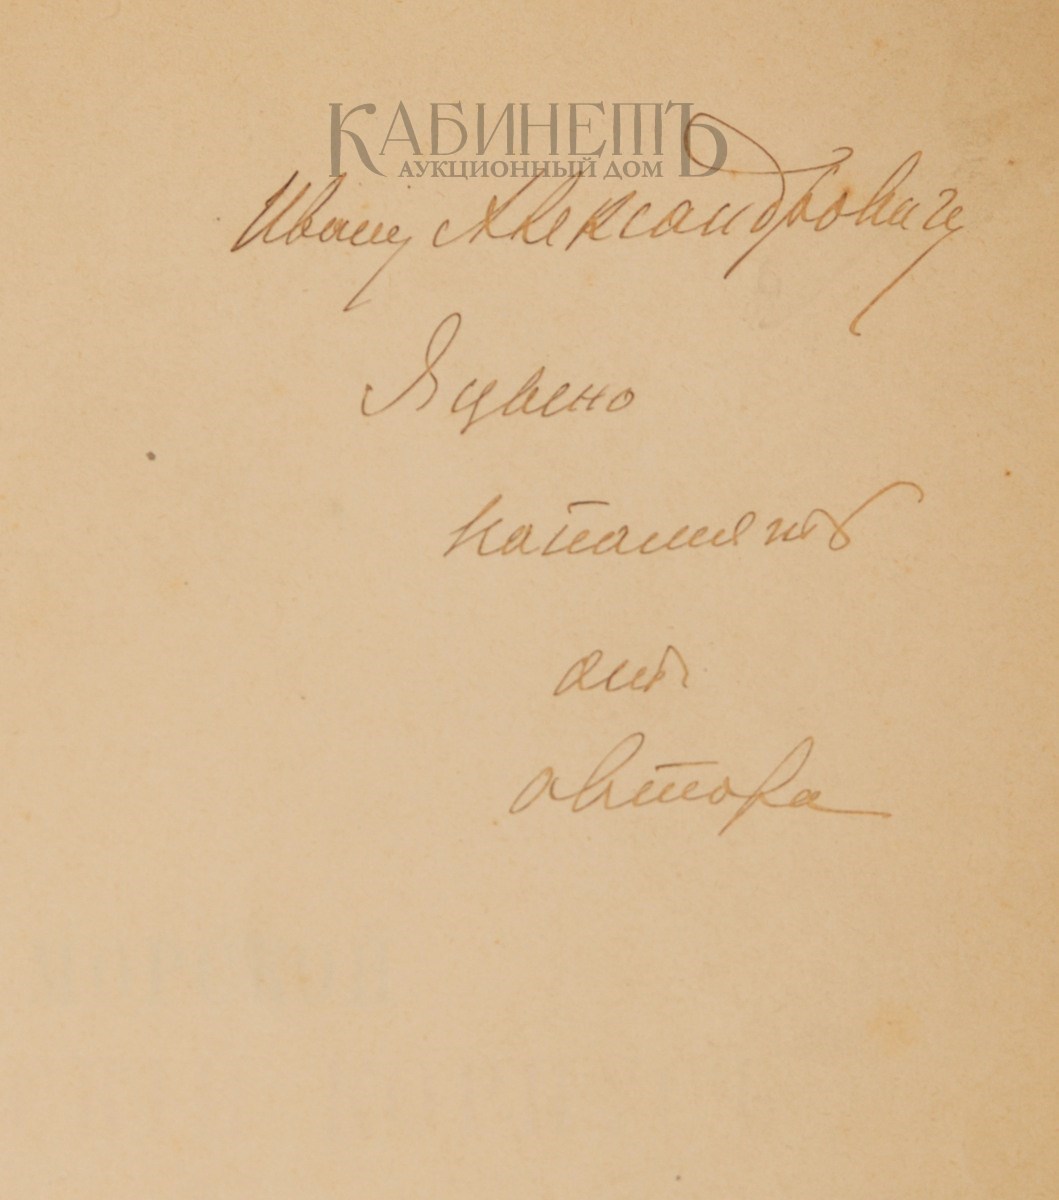 КАБИНЕТЪ
АУКЦИОННЫЙ ДОМ
Ивану Александровичу
Яцвено
на память
отъ
автора